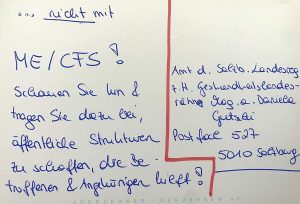 ... nicht mit
ME/CFS !
Schauen Sie hin &
tragen Sie dazu bei,
öffentliche Strukturen
zu schaffen, die Be-
troffenen & Angehörigen hilft !
Amt d. Salzb. Landesreg
z.H. Gesundheitslandes-
rätin Mag. a. Daniela
Gutschi
Postfach 527
5010 Salzburg